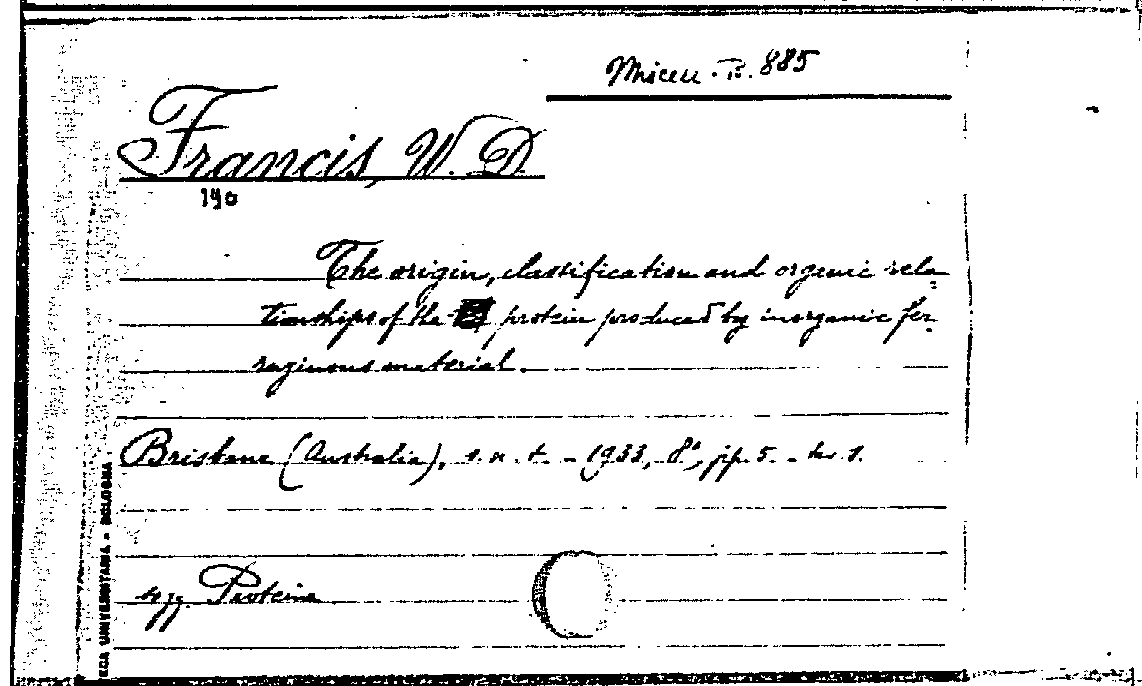 Miscell. B. 885
Francis, W. D.
190
The origin, classification and organic rela-
tionships of the protein produced by inorganic fer-
ruginous material.
Brisbane (Australia), s. n. t. - 1933, 8°, pp. 5. -
sogg. Proteina
TECA UNIVERSITARIA - BOLOGNA